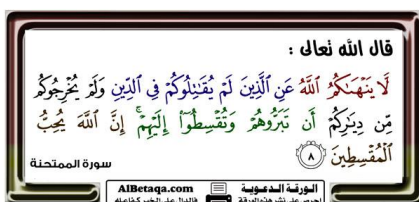 قال الله تعالى :
لَّا يَنْهَىٰكُمُ ٱللَّهُ عَنِ ٱلَّذِينَ لَمْ يُقَٰتِلُوكُمْ فِى ٱلدِّينِ وَلَمْ يُخْرِجُوكُم
مِّن دِيَٰرِكُمْ أَن تَبَرُّوهُمْ وَتُقْسِطُوٓا۟ إِلَيْهِمْ ۚ إِنَّ ٱللَّهَ يُحِبُّ
ٱلْمُقْسِطِينَ ٨
سورة الممتحنة
الورقة الدعوية AlBetaqa.com